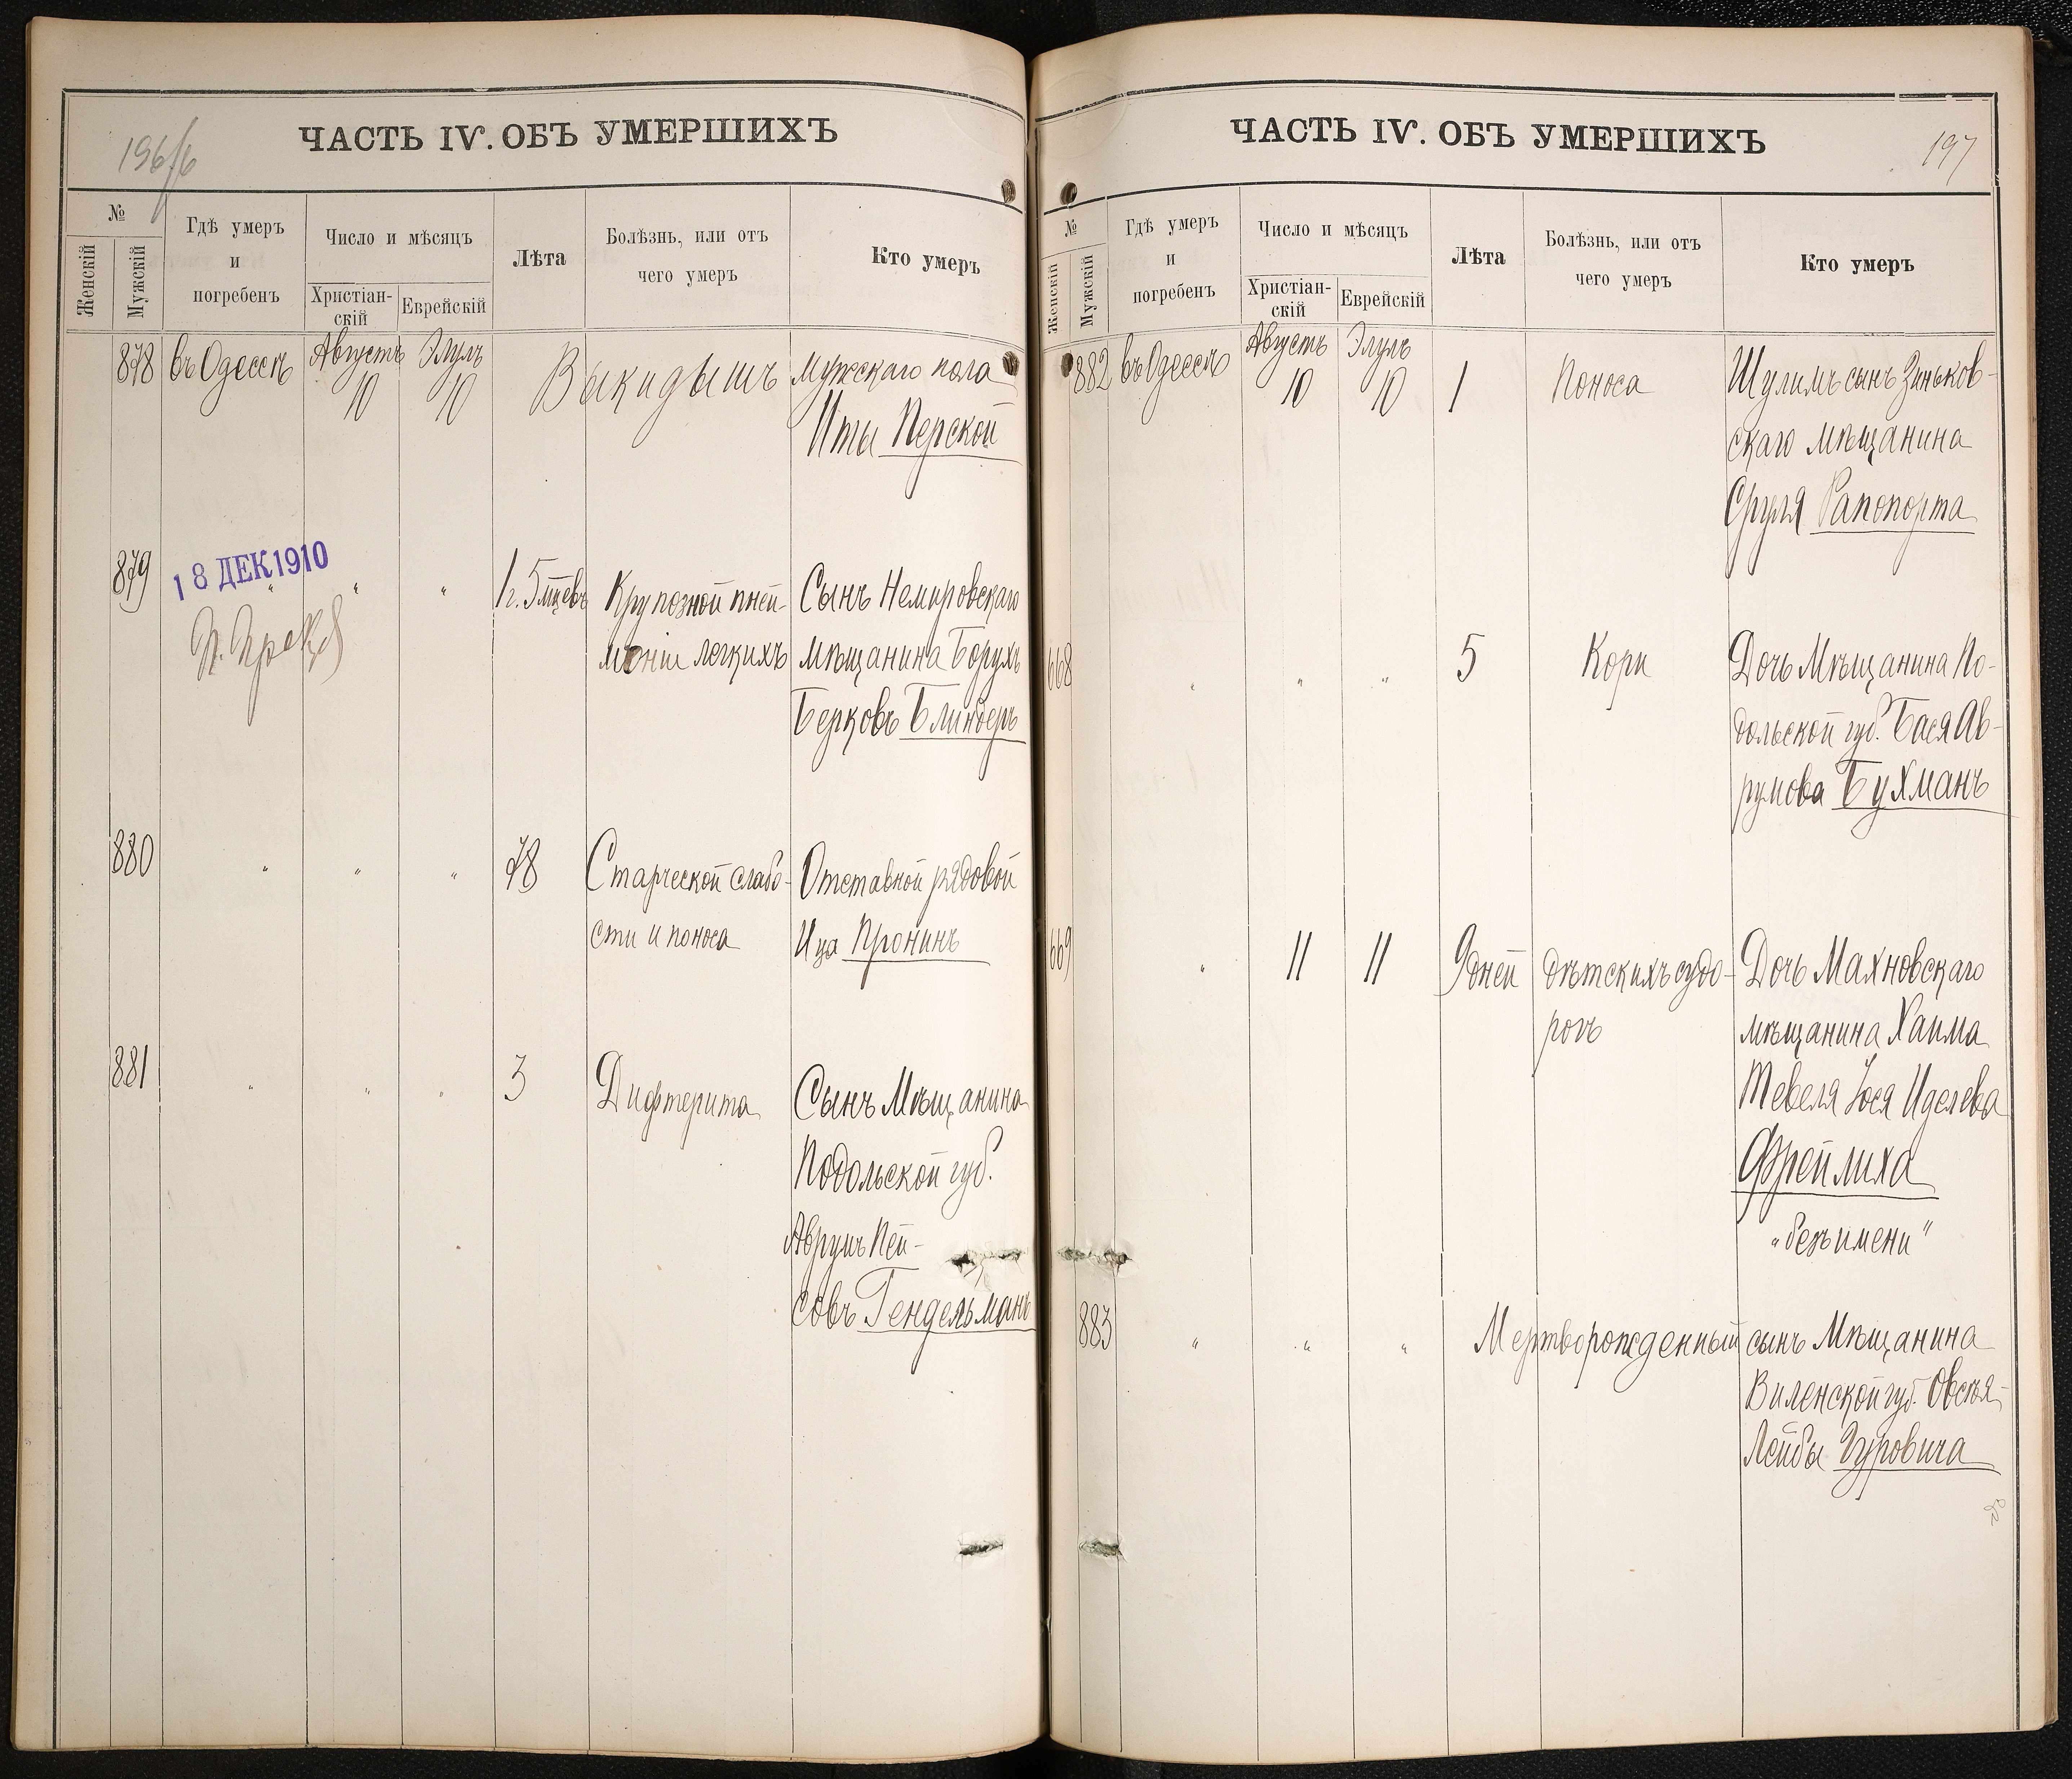 196/б
ЧАСТЬ IV. ОБЪ УМЕРШИХЪ
№
Женскій
Мужскій
Гдѣ умеръ
и
погребенъ
Число и мѣсяцъ
Христіан-
скій
Еврейскій
Лѣта
Болѣзнь, или отъ
чего умеръ
Кто умеръ
878 въ Одессѣ Августъ Элулъ Выкидышъ мужскаго пола
10 10 Иты Перской
879 18 ДЕК 1910 " " " 1 г. 5 мцевъ Крупозной пней- Сынъ Немировскаго
моніи легкихъ мѣщанина Борухъ
Берковъ Блиндеръ
880 " " " 78 Старческой слабо- Отставной рядовой
сти и поноса Ица Пронинъ
881 " " " 3 Дифтерита Сынъ Мѣщанина
Подольской губ.
Аврумъ Пей-
совъ Гендельманъ
197
ЧАСТЬ IV. ОБЪ УМЕРШИХЪ
№
Женскій
Мужскій
Гдѣ умеръ
и
погребенъ
Число и мѣсяцъ
Христіан-
скій
Еврейскій
Лѣта
Болѣзнь, или отъ
чего умеръ
Кто умеръ
882 въ Одессѣ Августъ Элулъ 1 Поноса Шулимъ сынъ Зиньков-
10 10 скаго мѣщанина
Сруля Рапопорта
668 " " " 5 Кори Дочь Мѣщанина По-
дольской губ. Бася Ав-
румова Бухманъ
669 " 11 11 9 дней дѣтскихъ судо- Дочь Махновскаго
рогъ мѣщанина Хаима
Тевеля Іося Иделева
Фрейлиха
"безъ имени"
883 " " " Мертворожденный сынъ Мѣщанина
Виленской губ. Овсѣя-
Лейбы Гуровича